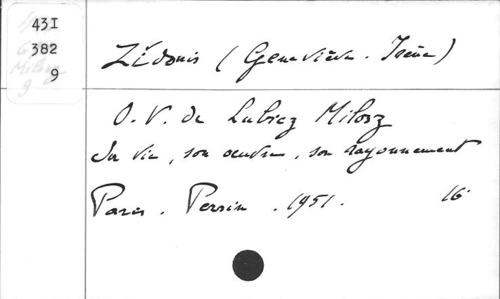 43I
382
9
Židonis (Geneviève-Irène)
O. V. de Lubicz Milosz
Sa vie, son œuvre, son rayonnement
Paris. Perrin. 1951. 16